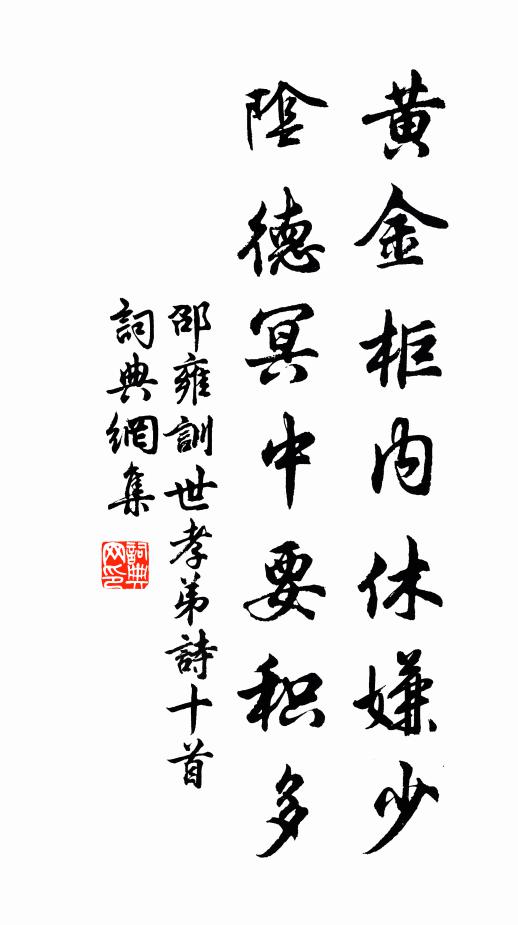 黄金柜内休嫌少
陰德冥中要积多
邵雍訓世孝弟詩十首
詞典網集
詞典
网印